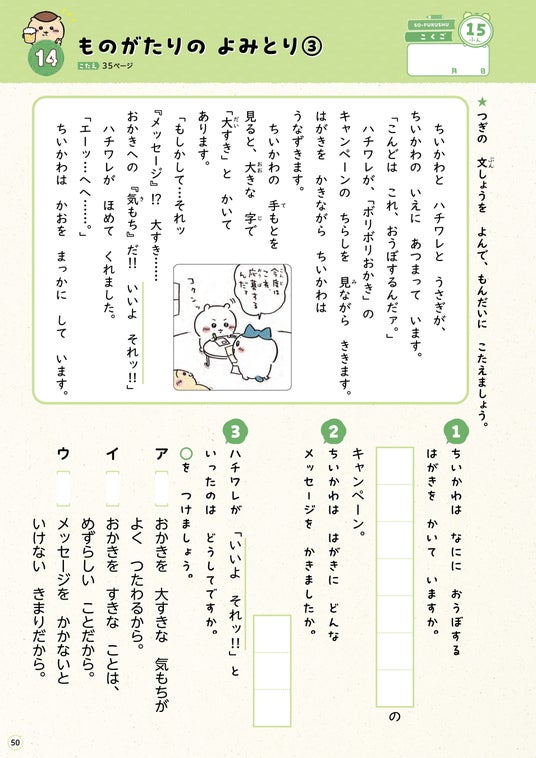 14
ものがたりの よみとり③
こたえ 35ページ
SO-FUKUSHU
こくご
15
ふん
月 日
★つぎの 文しょうを よんで、もんだいに こたえましょう。
ちいかわと ハチワレと うさぎが、
ちいかわの いえに あつまって います。
「こんどは これ、おうぼするんだァ。」
ハチワレが、「ポリポリおかき」の
キャンペーンの ちらしを 見ながら ききます。
はがきを かきながら ちいかわは
うなずきます。
ちいかわの 手もとを
見ると、大きな 字で
「大すき」と かいて
あります。
「もしかして…それッ
『メッセージ』!? 大すき……
おかきへの 『気もち』だ!! いいよ それッ!!」
ハチワレが ほめて くれました。
「エーッ…へへ……。」
ちいかわは かおを まっかに して います。
今度は
これ、
応募する
んだァ
コクンッ
1 ちいかわは なにに おうぼする
はがきを かいて いますか。
の
キャンペーン。
2 ちいかわは はがきに どんな
メッセージを かきましたか。
3 ハチワレが 「いいよ それッ!!」と
いったのは どうしてですか。
○を つけましょう。
ア おかきを 大すきな 気もちが
よく つたわるから。
イ おかきを すきな ことは、
めずらしい ことだから。
ウ メッセージを かかないと
いけない きまりだから。
50